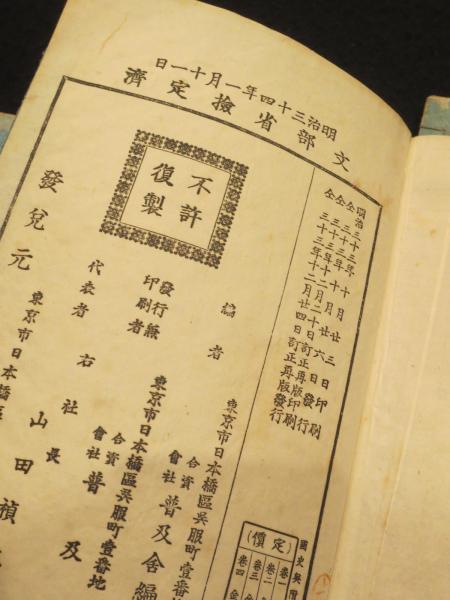 明治三十四年一月十一日
文部省檢定濟
明治三十三年十月廿三日印刷
仝三十三年十月廿六日發行
仝三十三年十二月二十日訂正再版印刷
仝三十三年十二月廿四日訂正再版發行
編者
東京市日本橋區吳服町壹番地
合資會社
普及舍編
發行兼印刷者
東京市日本橋區吳服町壹番地
合資會社
普及
代表者
右社長
山田禎
發兌元
東京市日本橋區
不許復製
定價
卷一
卷二
卷三
卷四